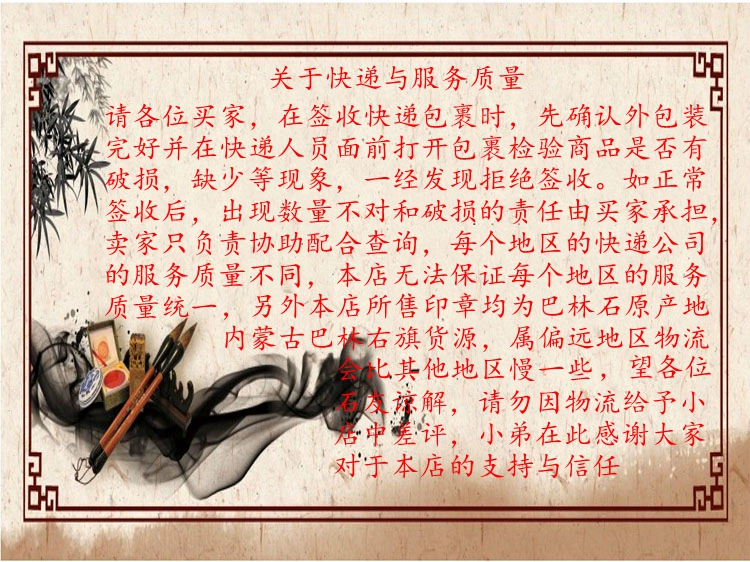 关于快递与服务质量
请各位买家，在签收快递包裹时，先确认外包装
完好并在快递人员面前打开包裹检验商品是否有
破损，缺少等现象，一经发现拒绝签收。如正常
签收后，出现数量不对和破损的责任由买家承担，
卖家只负责协助配合查询，每个地区的快递公司
的服务质量不同，本店无法保证每个地区的服务
质量统一，另外本店所售印章均为巴林石原产地
内蒙古巴林右旗货源，属偏远地区物流
会比其他地区慢一些，望各位
石友谅解，请勿因物流给予小
店中差评，小弟在此感谢大家
对于本店的支持与信任